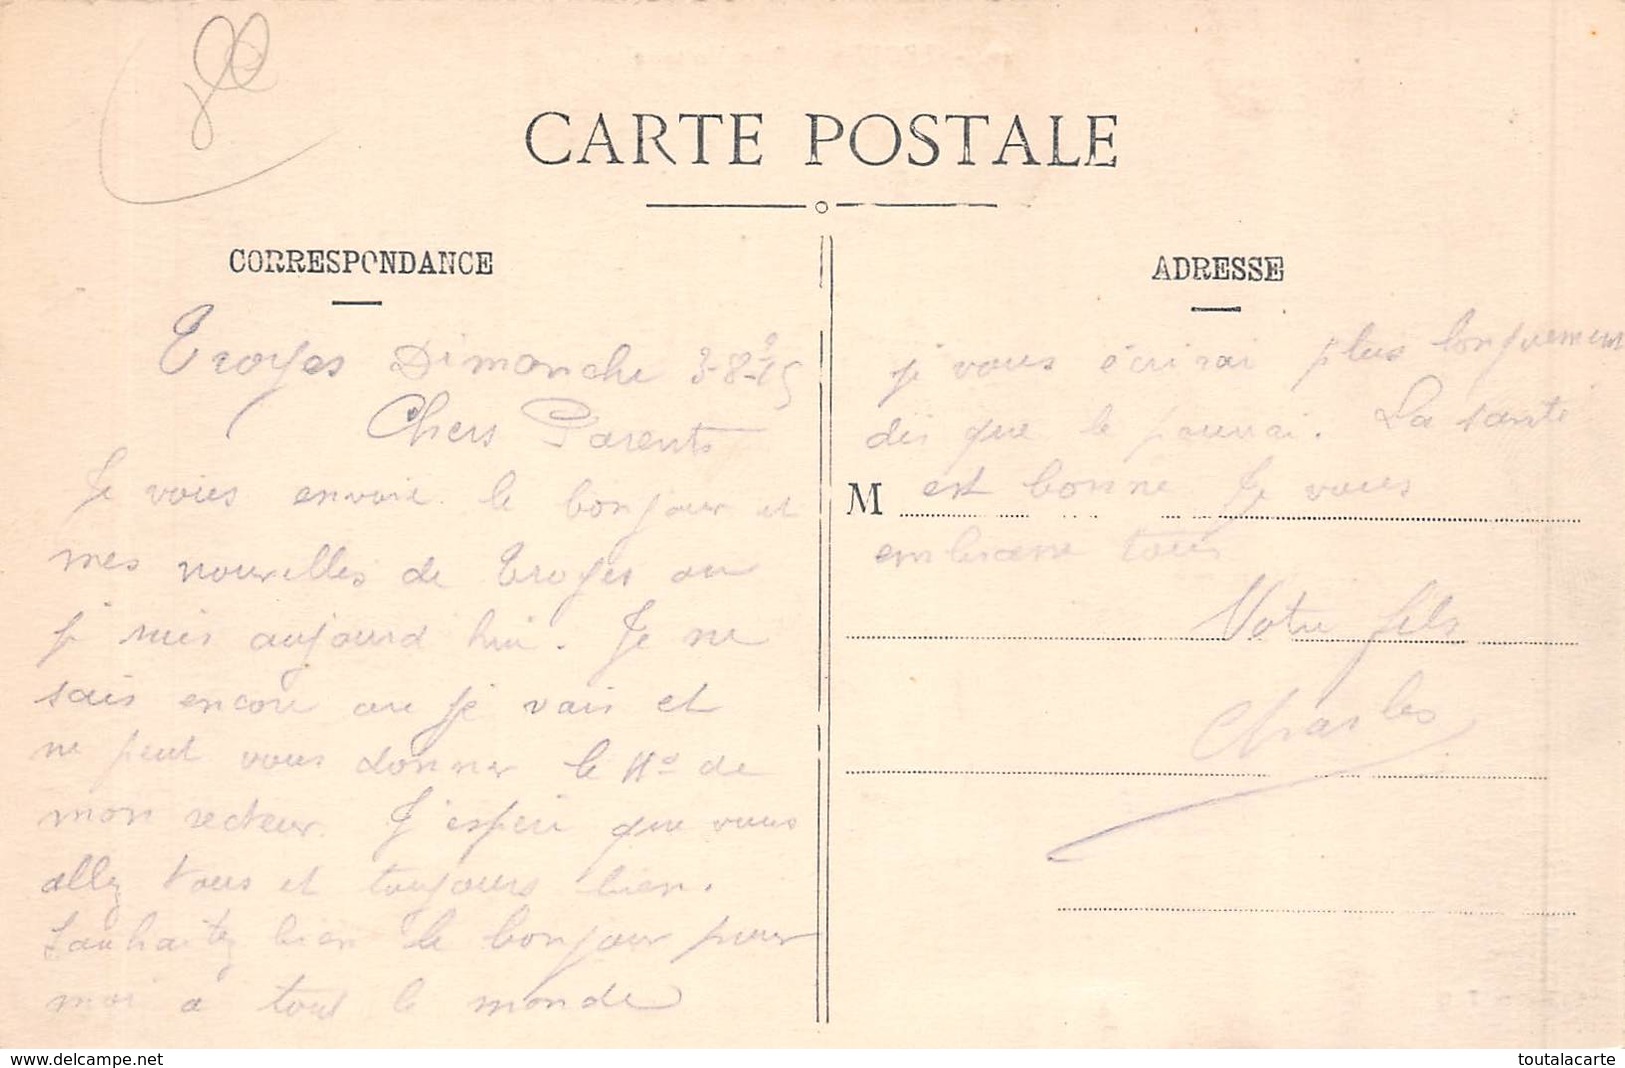 CARTE POSTALE
CORRESPONDANCE
Troyes Dimanche
Chers Parents
Je vous envoie le bonjour et
mes nouvelles de Troyes ou
je suis aujourd hui. Je ne
sais encore ou je vais et
ne peut vous donner le No de
mon secteur. J'espère que vous
allez tous et toujours bien.
Souhaitez bien le bonjour pour
moi a tout le monde
ADRESSE
je vous écrirai plus longuement
dès que le pourrai. La santé
M est bonne Je vous
embrasse tous
Votre fils
Charles
www.delcampe.net
toutalacarte